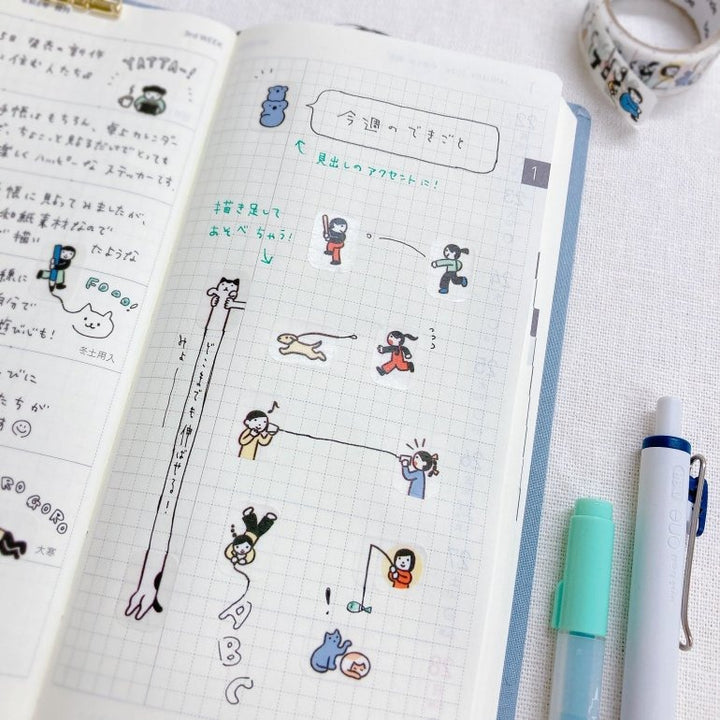 3rd WEEK
5日 発売の新作
住む人たち♪
YATTA〜!
手帳はもちろん、卓上カレンダー
で、ちょこっと貼るだけでとっても
楽しくハッピーな ステッカーです。
手帳に貼ってみましたが、
和紙素材なので
で描い
たような
FOOO!
様に
自分で
遊び心も!
冬土用入
びに
たちが
す
ROGORO
大寒
今週のできごと
見出しのアクセントに!
1
描き足して
あそべちゃう!
みょーーー
どこまでも伸ばせる!
!
A
B
C